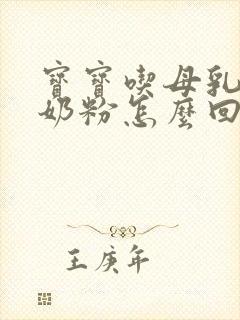 寶寶喫母乳
奶粉怎麼回
王庚年